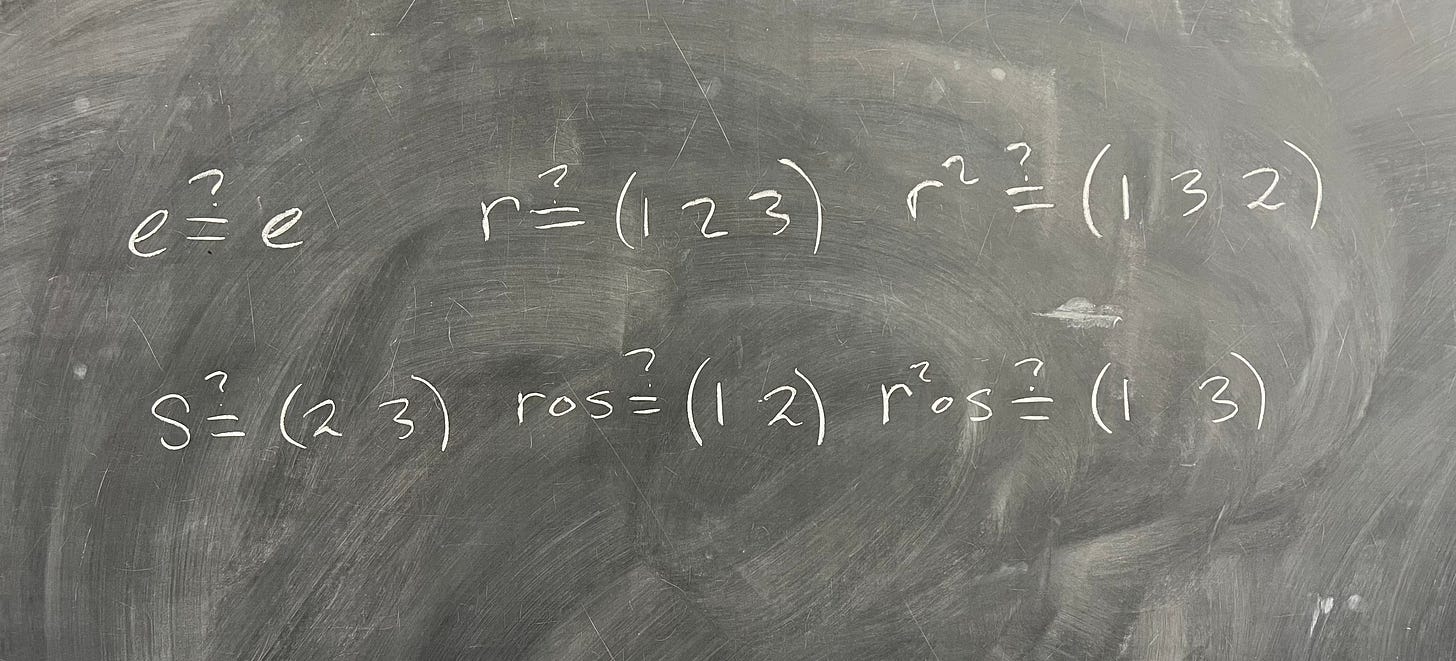 e ≟ e r ≟ (1 2 3) r² ≟ (1 3 2)
S ≟ (2 3) r∘s ≟ (1 2) r²∘s ≟ (1 3)